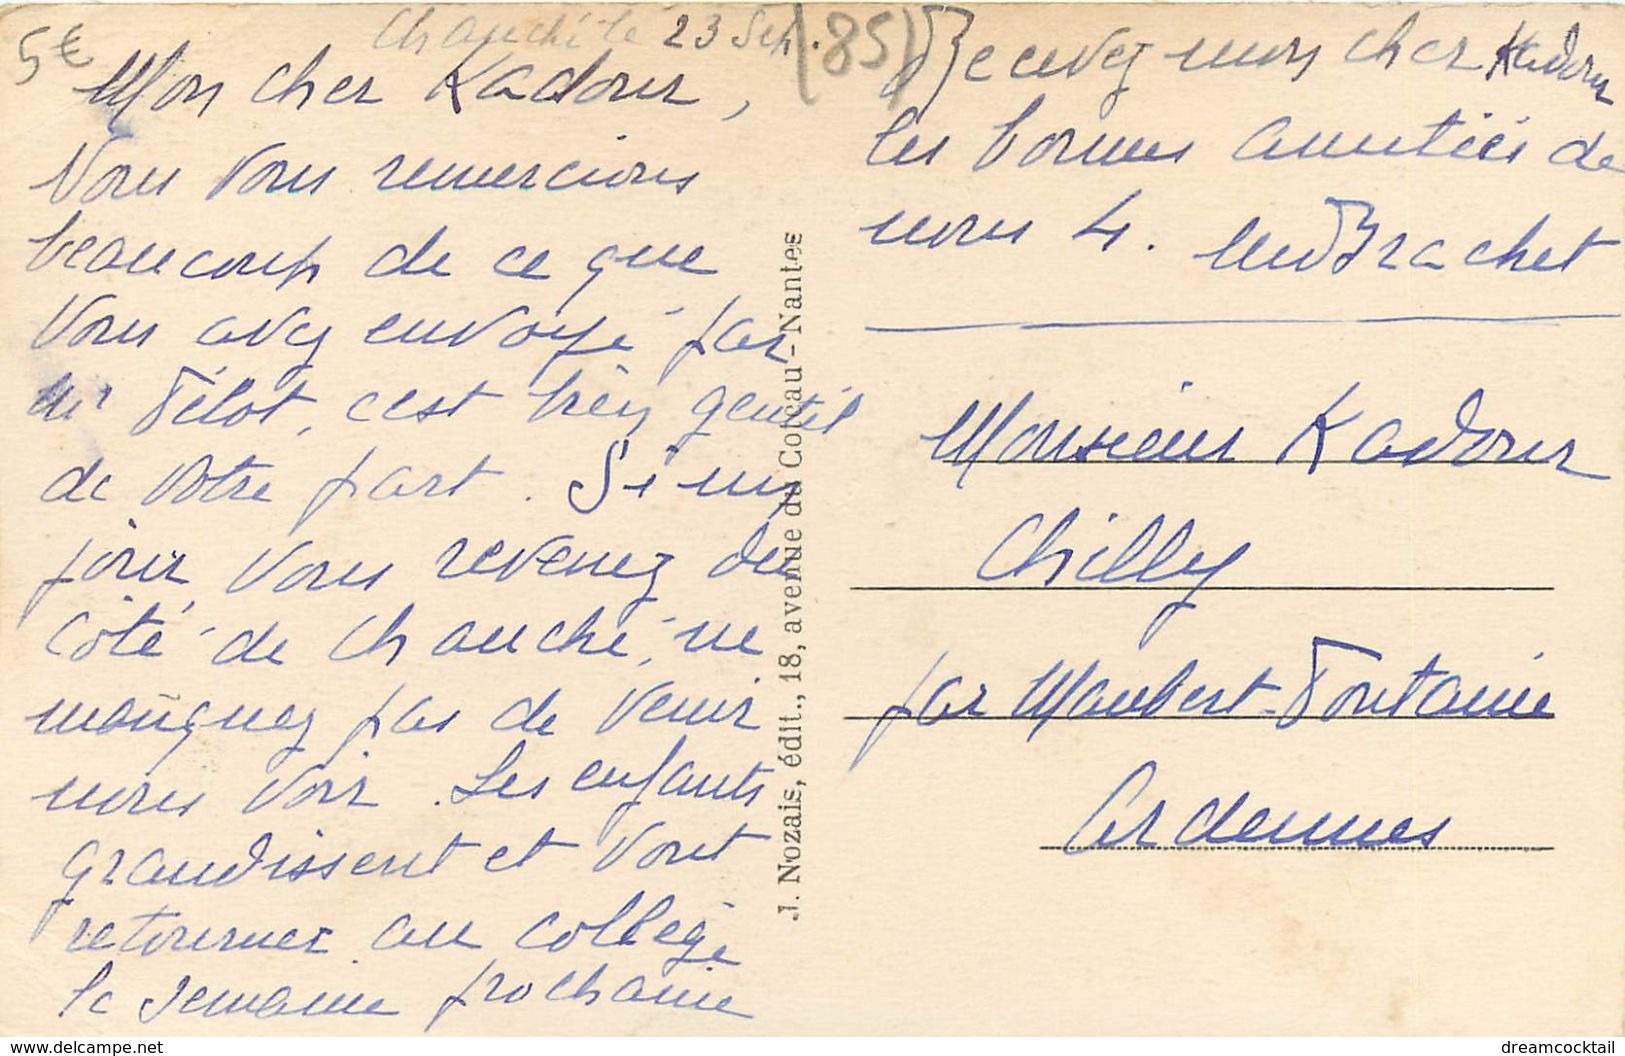 5€
Chauché le 23 Sept. (85)
Mon cher Kadour,
Nous vous remercions
beaucoup de ce que
vous avez envoyé par
Mr Télot, c'est bien gentil
de votre part. Si un
jour vous revenez du
côté de Chauché, ne
manquez pas de venir
nous voir. Les enfants
grandissent et vont
retourner au collège
la semaine prochaine
Recevez mon cher Kadour
les bonnes amitiés de
nous 4. Brachet
J. Nozais, édit., 18, avenue du Coteau - Nantes
Monsieur Kadour
Chilly
par Maubert-Fontaine
Ardennes
www.delcampe.net
dreamcocktail